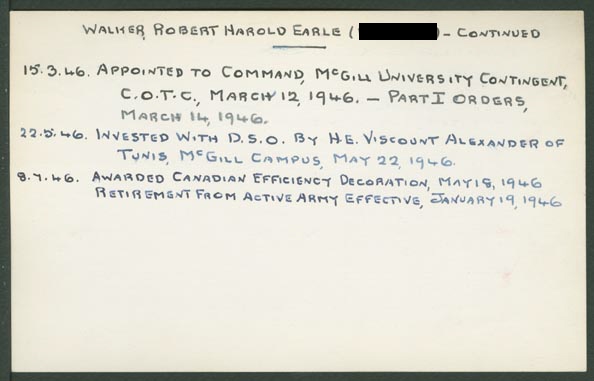 WALKER, ROBERT HAROLD EARLE ( ) - CONTINUED
15.3.46. APPOINTED TO COMMAND, McGILL UNIVERSITY CONTINGENT,
C.O.T.C., MARCH 12, 1946. - PART I ORDERS,
MARCH 14, 1946.
22.5.46. INVESTED WITH D.S.O. BY H.E. VISCOUNT ALEXANDER OF
TUNIS, McGILL CAMPUS, MAY 22, 1946.
8.7.46. AWARDED CANADIAN EFFICIENCY DECORATION, MAY 18, 1946
RETIREMENT FROM ACTIVE ARMY EFFECTIVE, JANUARY 19, 1946